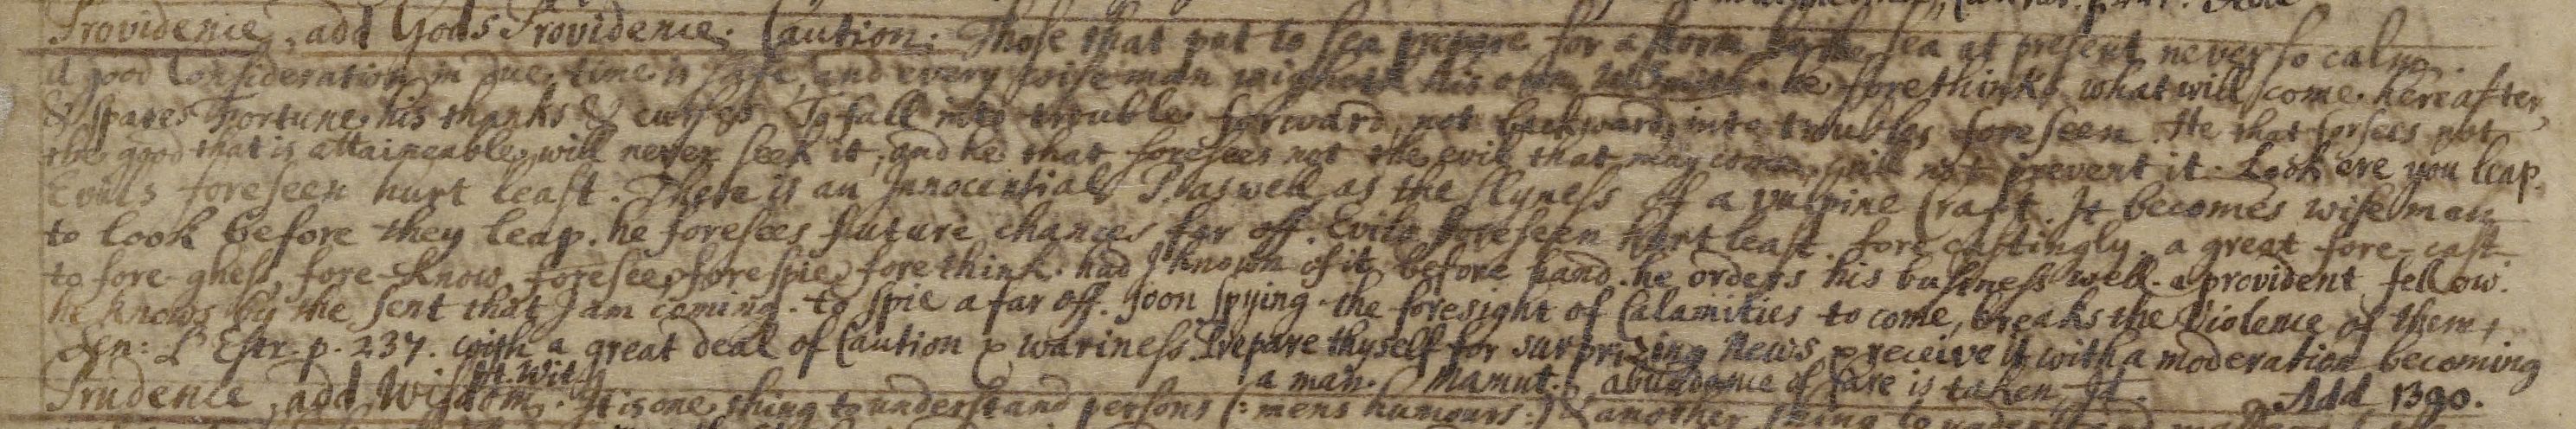 Providence, add Gods Providence. Caution. Those that put to sea prepare for a storm, tho the sea at present never so calm.
A good Consideration in due time is safe, and every wise man his own he forethinks what will come hereafter,
& spares Fortune his thanks & curses. To fall into trouble forward, not backward, into troubles foreseen. He that forsees not
the good that is attaineable, will never seek it, and he that foresees not the evil that may come, will not prevent it. Look ere you leap.
Evills foreseen hurt least. There is an Innocential P. aswell as the slyness of a vulpine Craft. It becomes wise men
to look before they leap. he foresees future chances far off. Evils foreseen hurt least. fore castingly. a great fore-cast
to fore-ghess, fore-know, foresee, forespie, forethink. had I known of it before hand. he orders his business well. a provident fellow.
he knows by the sent that I am coming. to spie a far off. soon spying. the foresight of Calamities to come, breaks the Violence of them,
Sen: L'Estr. p. 237. with a great deal of Caution & wariness. Prepare thyself for surprizing News & receive it with a moderation becoming
a man. Mamut. abundance of Care is taken. Id. Add 1390.
Prudence, add Wisdom. Wit. It is one thing to understand persons (: mens humours :) & another thing to